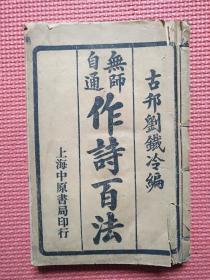 古邗劉鐵冷編
無師自通
作詩百法
上海中原書局印行